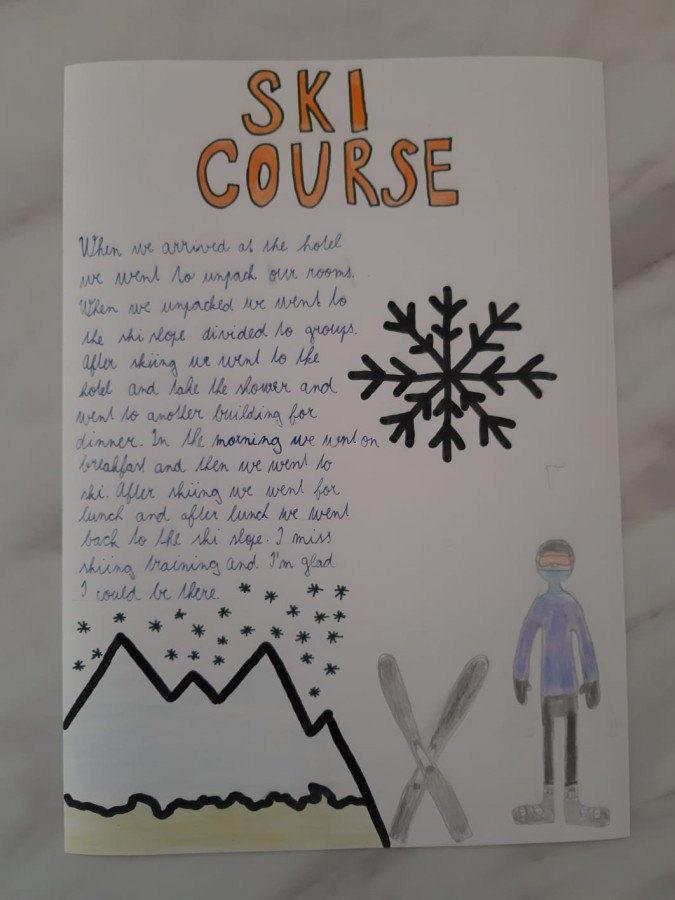 SKI
COURSE
When we arrived at the hotel
we went to unpack our rooms.
When we unpacked we went to
the ski slope divided to groups.
After skiing we went to the
hotel and take the shower and
went to another building for
dinner. In the morning we went on
breakfast and then we went to
ski. After skiing we went for
lunch and after lunch we went
back to the ski slope. I miss
skiing training and I'm glad
I could be there.